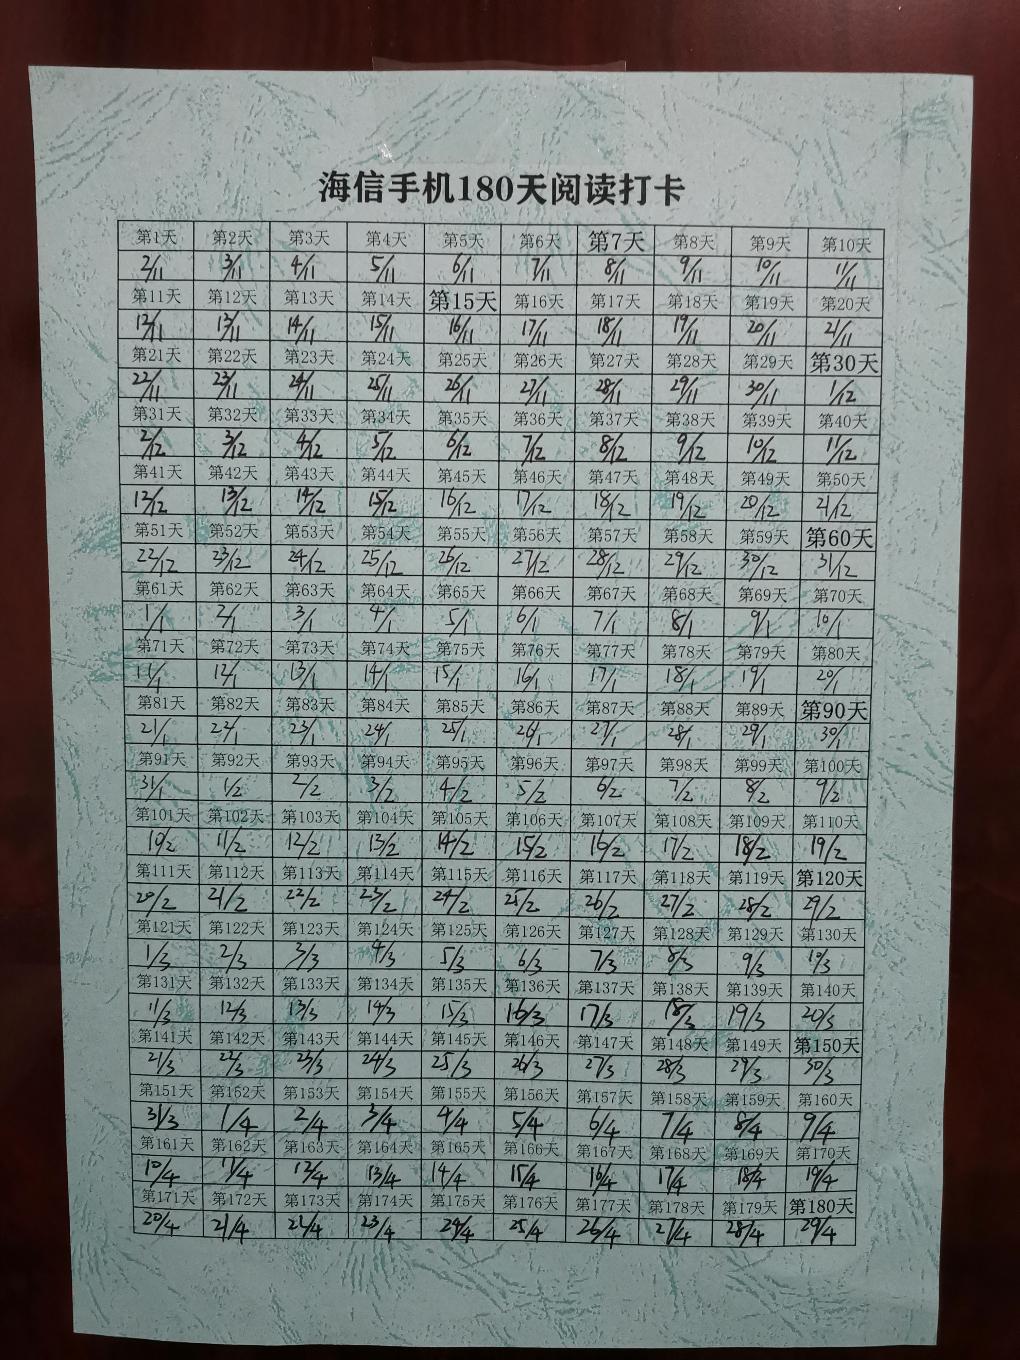 海信手机180天阅读打卡
第1天 第2天 第3天 第4天 第5天 第6天 第7天 第8天 第9天 第10天
2/11 3/11 4/11 5/11 6/11 7/11 8/11 9/11 10/11 11/11
第11天 第12天 第13天 第14天 第15天 第16天 第17天 第18天 第19天 第20天
12/11 13/11 14/11 15/11 16/11 17/11 18/11 19/11 20/11 21/11
第21天 第22天 第23天 第24天 第25天 第26天 第27天 第28天 第29天 第30天
22/11 23/11 24/11 25/11 26/11 27/11 28/11 29/11 30/11 1/12
第31天 第32天 第33天 第34天 第35天 第36天 第37天 第38天 第39天 第40天
2/12 3/12 4/12 5/12 6/12 7/12 8/12 9/12 10/12 11/12
第41天 第42天 第43天 第44天 第45天 第46天 第47天 第48天 第49天 第50天
12/12 13/12 14/12 15/12 16/12 17/12 18/12 19/12 20/12 21/12
第51天 第52天 第53天 第54天 第55天 第56天 第57天 第58天 第59天 第60天
22/12 23/12 24/12 25/12 26/12 27/12 28/12 29/12 30/12 31/12
第61天 第62天 第63天 第64天 第65天 第66天 第67天 第68天 第69天 第70天
1/1 2/1 3/1 4/1 5/1 6/1 7/1 8/1 9/1 10/1
第71天 第72天 第73天 第74天 第75天 第76天 第77天 第78天 第79天 第80天
11/1 12/1 13/1 14/1 15/1 16/1 17/1 18/1 19/1 20/1
第81天 第82天 第83天 第84天 第85天 第86天 第87天 第88天 第89天 第90天
21/1 22/1 23/1 24/1 25/1 26/1 27/1 28/1 29/1 30/1
第91天 第92天 第93天 第94天 第95天 第96天 第97天 第98天 第99天 第100天
31/1 1/2 2/2 3/2 4/2 5/2 6/2 7/2 8/2 9/2
第101天 第102天 第103天 第104天 第105天 第106天 第107天 第108天 第109天 第110天
10/2 11/2 12/2 13/2 14/2 15/2 16/2 17/2 18/2 19/2
第111天 第112天 第113天 第114天 第115天 第116天 第117天 第118天 第119天 第120天
20/2 21/2 22/2 23/2 24/2 25/2 26/2 27/2 28/2 29/2
第121天 第122天 第123天 第124天 第125天 第126天 第127天 第128天 第129天 第130天
1/3 2/3 3/3 4/3 5/3 6/3 7/3 8/3 9/3 10/3
第131天 第132天 第133天 第134天 第135天 第136天 第137天 第138天 第139天 第140天
11/3 12/3 13/3 14/3 15/3 16/3 17/3 18/3 19/3 20/3
第141天 第142天 第143天 第144天 第145天 第146天 第147天 第148天 第149天 第150天
21/3 22/3 23/3 24/3 25/3 26/3 27/3 28/3 29/3 30/3
第151天 第152天 第153天 第154天 第155天 第156天 第157天 第158天 第159天 第160天
31/3 1/4 2/4 3/4 4/4 5/4 6/4 7/4 8/4 9/4
第161天 第162天 第163天 第164天 第165天 第166天 第167天 第168天 第169天 第170天
10/4 11/4 12/4 13/4 14/4 15/4 16/4 17/4 18/4 19/4
第171天 第172天 第173天 第174天 第175天 第176天 第177天 第178天 第179天 第180天
20/4 21/4 22/4 23/4 24/4 25/4 26/4 27/4 28/4 29/4